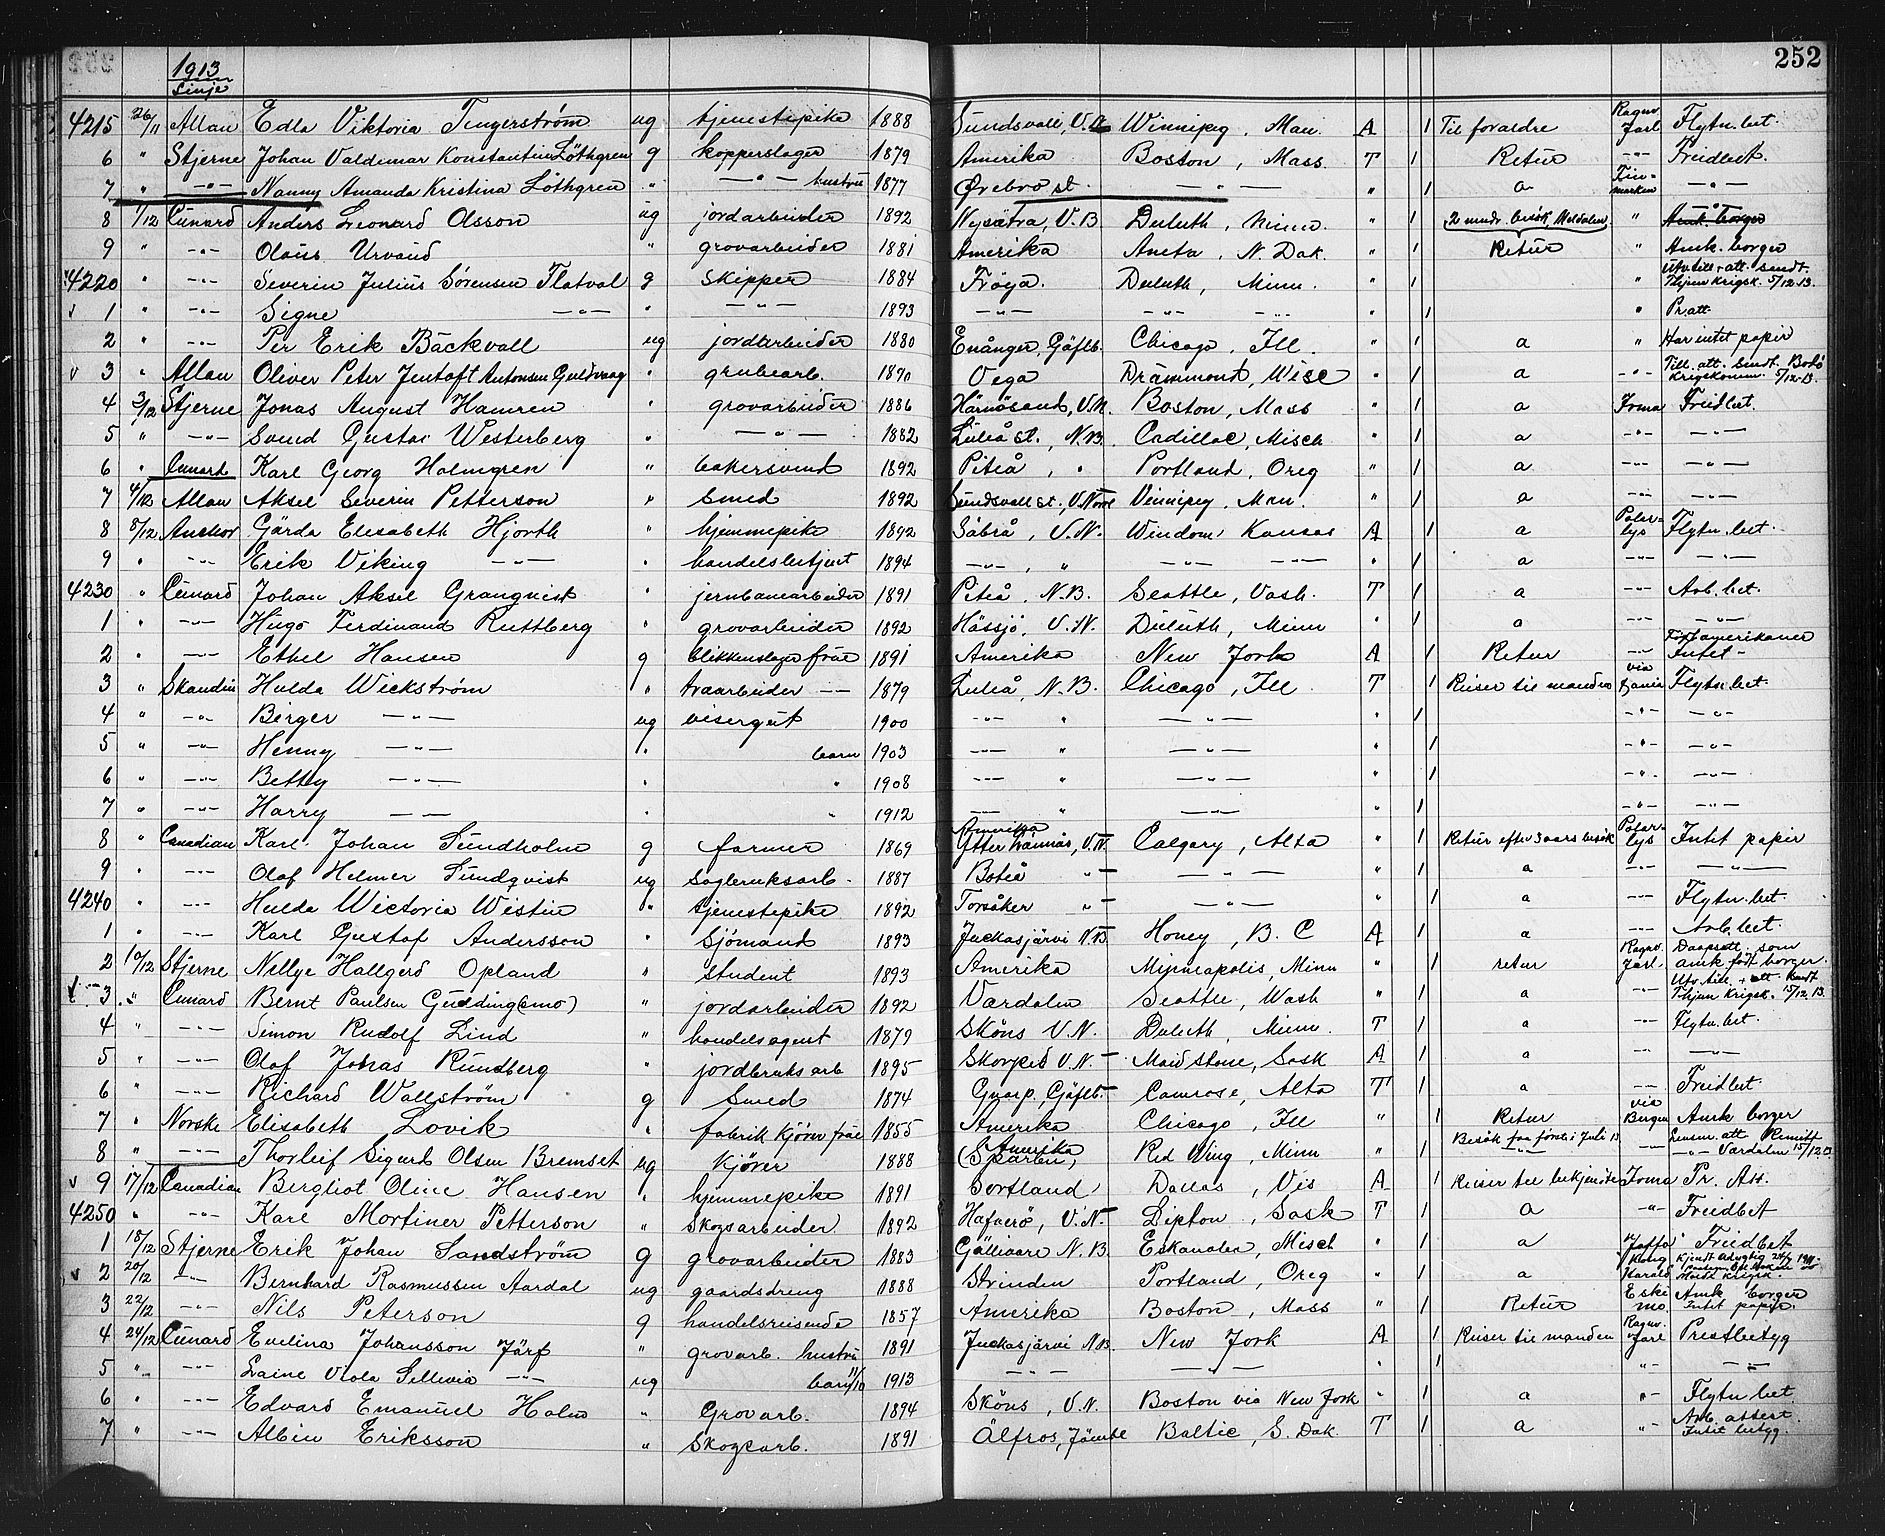 252
1913
Linje
4215 26/11 Allan Edla Viktoria Tingerstrøm ug tjenestepike 1888 Sundsvall, V.N. Winnipeg, Man. A 1 Til foraldre Ragnv. Jarl Flytn. bet.
6 " Stjerne Johan Valdemar Konstantin Løthgren g kopperslager 1879 Amerika Boston, Mass. T 1 Retur -"- Freidbet.
7 " -"- Nanny Amanda Kristina Löthgren " -"- hustru 1877 Ørebro st. -"- " 1 a Finmarken -"-
8 1/12 Cunard Anders Leonard Olsson ug jordarbeider 1892 Nysätra, V.B Duluth, Minn. " 1 2 mndr. besök, Meldalen " Amk. borger
9 " -"- Olaus Urvand " grovarbeider 1881 Amerika Aneta, N. Dak. " 1 Retur " Amk. borger
4220 " -"- Severin Julius Sørensen Flatval g skipper 1884 Fröya. Duluth, Minn. " 1 " Utv. till. + att. sendt. Thjem krigsk. 5/12-13.
1 " -"- Signe -"- " -"- 1893 -"- -"- -"- " 1 " Pr. att.
2 " -"- Per Erik Bäckvall ug jordarbeider 1880 Enånger, Gäflb. Chicago, Ill. " 1 a " Har intet papir
3 " Allan Oliver Peter Jentoft Antonsen Guldvaag " grubearb. 1890 Vega Drammond, Wisc " 1 a -"- Till. att. sendt. Bodö Krigskomm. 5/12-13.
4 3/12 Stjerne Jonas August Hamren " grovarbeider 1886 Härnösand, V.N. Boston, Mass " 1 a Irma Freidbet.
5 " -"- Svend Gustav Westerberg " -"- 1882 Luleå st., N.B. Cadillac, Misch " 1 a -"- -"-
6 " Cunard Karl Georg Holmgren " bakersvend 1892 Piteå, " Portland, Oreg " 1 a -"- -"-
7 4/12 Allan Aksel Severin Petterson " Smed 1892 Sundsvall st., V. Norrl Vinnipeg, Man. " 1 a -"- -"-
8 8/12 Anchor Gärda Elisabeth Hjorth " hjemmepike 1892 Säbrå, V.N. Windom, Kansas A 1 a Polarlys Flytn. bet.
9 " -"- Erik Viking -"- " handelsbetjent 1894 -"-, " -"- -"- " 1 a -"- -"-
4230 " Cunard Johan Aksel Granqvist " jernbanearbeider 1891 Piteå, N.B. Seattle, Vash. T 1 a -"- Arb. bet.
1 " -"- Hugo Ferdinand Ruttberg " grovarbeider 1892 Hässjö, V.N. Duluth, Minn " 1 a -"- -"-
2 " -"- Ethel Hansen g blikkenslager frue 1891 Amerika New York A 1 Retur -"- Född amerikaner Intet-
3 " Skandin Hulda Wickström " traarbeider -"- 1879 Luleå, N.B. Chicago, Ill. T 1 Reiser til manden via Flytn. bet.
4 " -"- Birger -"- ug visergut 1900 -"- " -"- " 1 -"- -"-
5 " -"- Henny -"- " barn 1903 -"- " -"- " 1 -"- -"-
6 " -"- Betty -"- " " 1908 -"- " -"- " 1 -"- -"-
7 " -"- Harry -"- " " 1912 -"- " -"- " 1 -"- -"-
8 " Canadian Karl Johan Sundholm g farmer 1869 Amerika Ytter Lännäs, V.N. Calgary, Alta " 1 Retur efter 3 aars besök Polarlys Intet papir
9 " -"- Olof Helmer Sundqvist ug Sagbruksarb. 1887 Boteå "- -"- " 1 a -"- -"-
4240 " -"- Hulda Wictoria Wistin " tjenestepike 1892 Torsåker "- -"- 1 a -"- Flytn. bet.
1 " -"- Karl Gustaf Andersson " Sjömand 1893 Juckasjärvi N.B. Honey, B.C A 1 a -"- Arb. bet.
2 10/12 Stjerne Nellye Hallgerd Opland " student 1893 Amerika Minneapolis, Minn " 1 retur Ragnv. Jarl. Daapsatt. som amk. födt borger.
3 " Cunard Bernt Paulsen Gudding(smo) " jordarbeider 1892 Værdalen Seattle, Wash " 1 a -"- Utv. till. + att. sendt Thjem Krigsk. 15/12. 13.
4 " -"- Simon Rudolf Lind " handelsagent 1879 Sköns V.N. Duluth, Minn. T 1 a -"- Flytn. bet.
5 " -"- Olof Johas Rundberg " jordbruksarb 1895 Skorped V.N. Maidstone, Sask A 1 a -"- -"-
6 " -"- Richard Wallström g Smed 1874 Gnarp, Gäflb. Camrose, Alta T 1 a -"- Freidbet.
7 " Norske Elisabeth Lovik " fabrik kjörer frue 1855 Amerika Chicago, Ill " 1 Retur via Bergen Amk borger
8 " -"- Thorleif Sigurd Olsen Bremset ug kjörer 1888 Amerika (Sparbu) Red Wing, Minn " 1 Besök fra först i Juli 13 -"- Lensm. att. -"- Værdalen 15/12 13.
9 17/12 Canadian Bergliot Oline Hansen " hjemmepike 1891 Sortland Dallas, Vis A 1 Reiser til bekjendte Irma Pr. Att.
4250 " -"- Karl Mortiner Petterson " Skogsarbeider 1892 Hafverö, V.N. Lipton, Sask T 1 a -"- Freidbet
1 18/12 Stjerne Erik Johan Sandström g grovarbeider 1883 Gällivare N.B. Eskanaba, Misch " 1 a Jaffa Freidbet
2 20/12 -"- Bernhard Rasmussen Aardal ug gaardsdreng 1888 Strinden Portland, Oreg " 1 a Kong Harald
3 22/12 -"- Nils Peterson g handelsreisende 1857 Amerika Boston, Mass " 1 Retur Eskimo. Amk borger Intet papir.
4 24/12 Cunard Evelina Johansson Järf " grovarb. hustru 1891 Juckasjärvi N.B. New York A 1 Reiser til manden Ragnv. Jarl Prestbetyg
5 " -"- Laine Viola Sellevia -"- ug barn 11/10 1913 -"- -"- " 1 "- -"-
6 " -"- Edvard Emanuel Holm " Grovarb. 1894 Sköns, V.N. Boston via New York " 1 a "- Flytn. bet.
7 " -"- Albin Eriksson " Skogsarb. 1891 Älfros, Jämtl Baltic, S. Dak. T 1 a "- Arb. attest. Intet betyg.